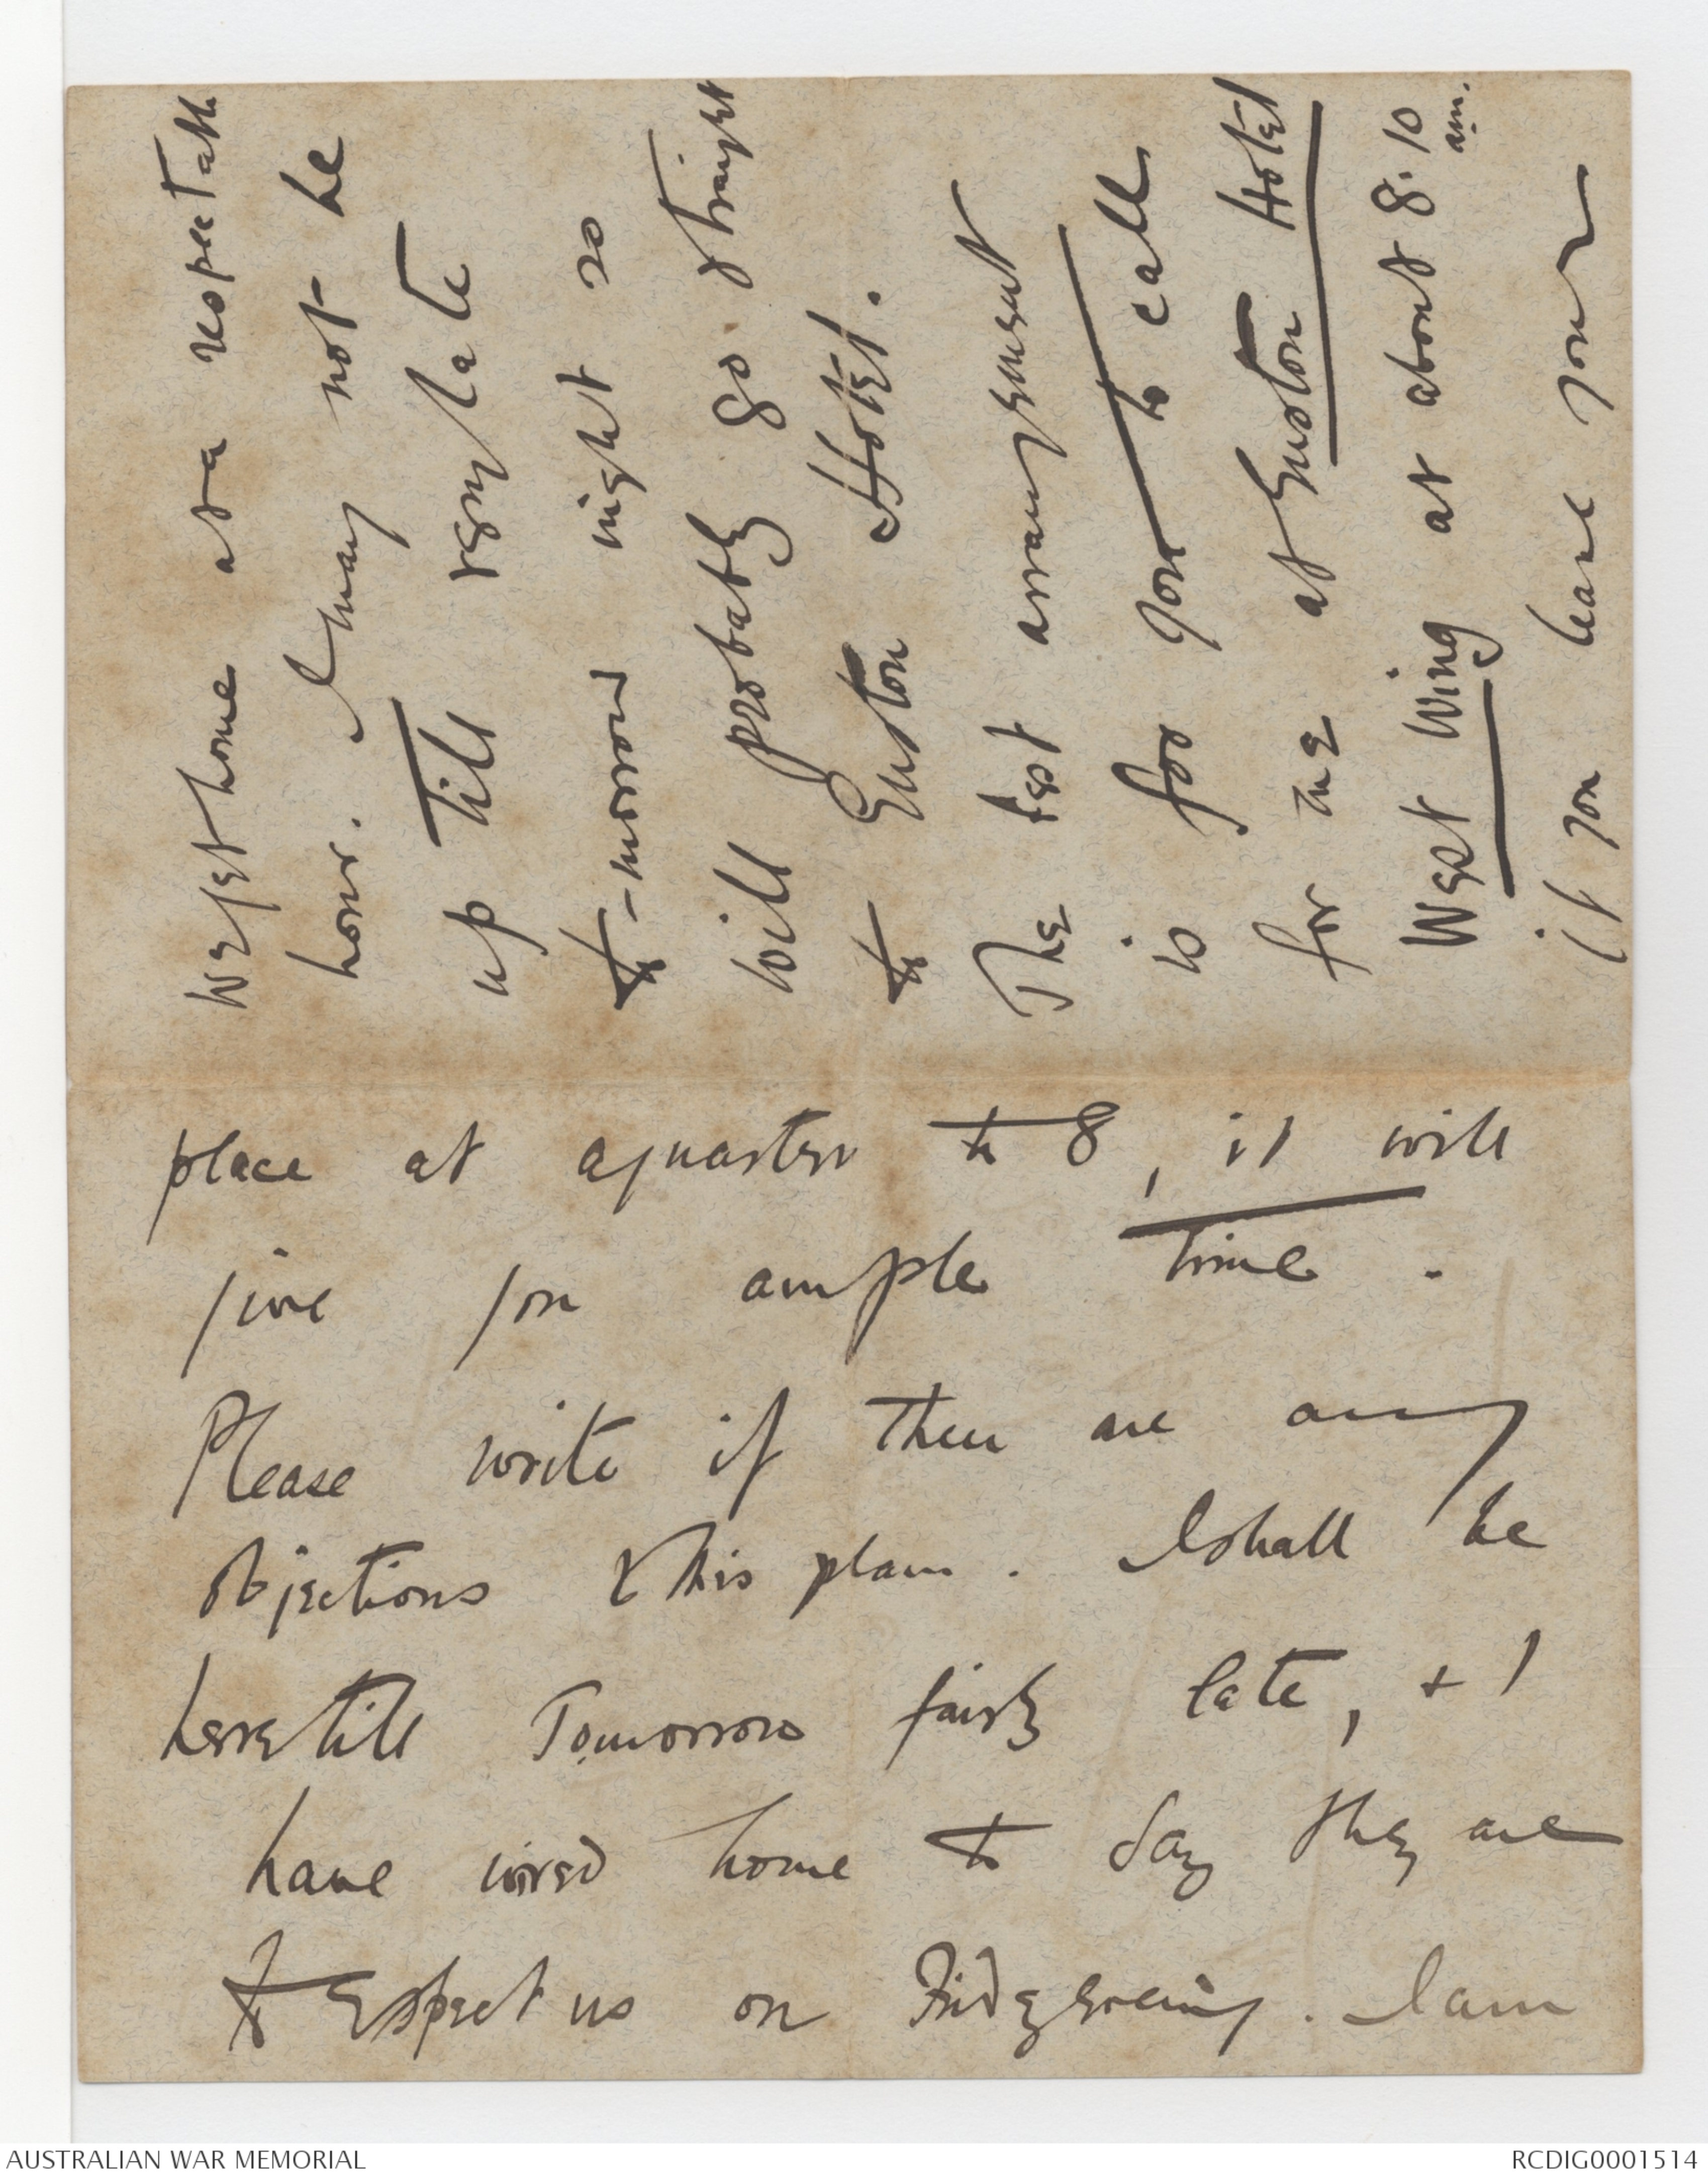 we get home at a respectable
hour. I may not be
up till very late
to-morrow night so
will probably go straight
to Euston Hotel.
The best arrangement
is for you to call
for me at Euston Hotel
West Wing at about 8.10 am.
if you leave your
place at a quarter to 8, it will
give you ample time.
Please write if there are any
objections to this plan. I shall be
here till Tomorrow fairly late, & I
have wired home to say they are
to expect us on Friday evening. I am
AUSTRALIAN WAR MEMORIAL
RCDIG0001514